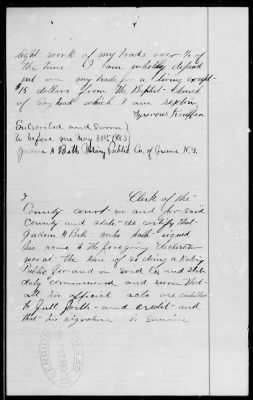 light work of my trade over ½ of
the time I am wholly depend
ent on my trade for a living except
15 dollars from the Baptist Church
of which I am sexton
Kniffen
Subscribed and sworn)
to before me May 31st 1883)
Judson A Betts Notary Public Co. of Queens N.Y.
I Clerk of the
County court in and for said
County and state do certify that
Judson A Betts who hath signed
his name to the foregoing declaration
was at the time of so doing a Notary
Public for and in said Co. and state
duly commissioned and sworn that
all his official acts are entitled
to full faith and credit and
that his signature is genuine